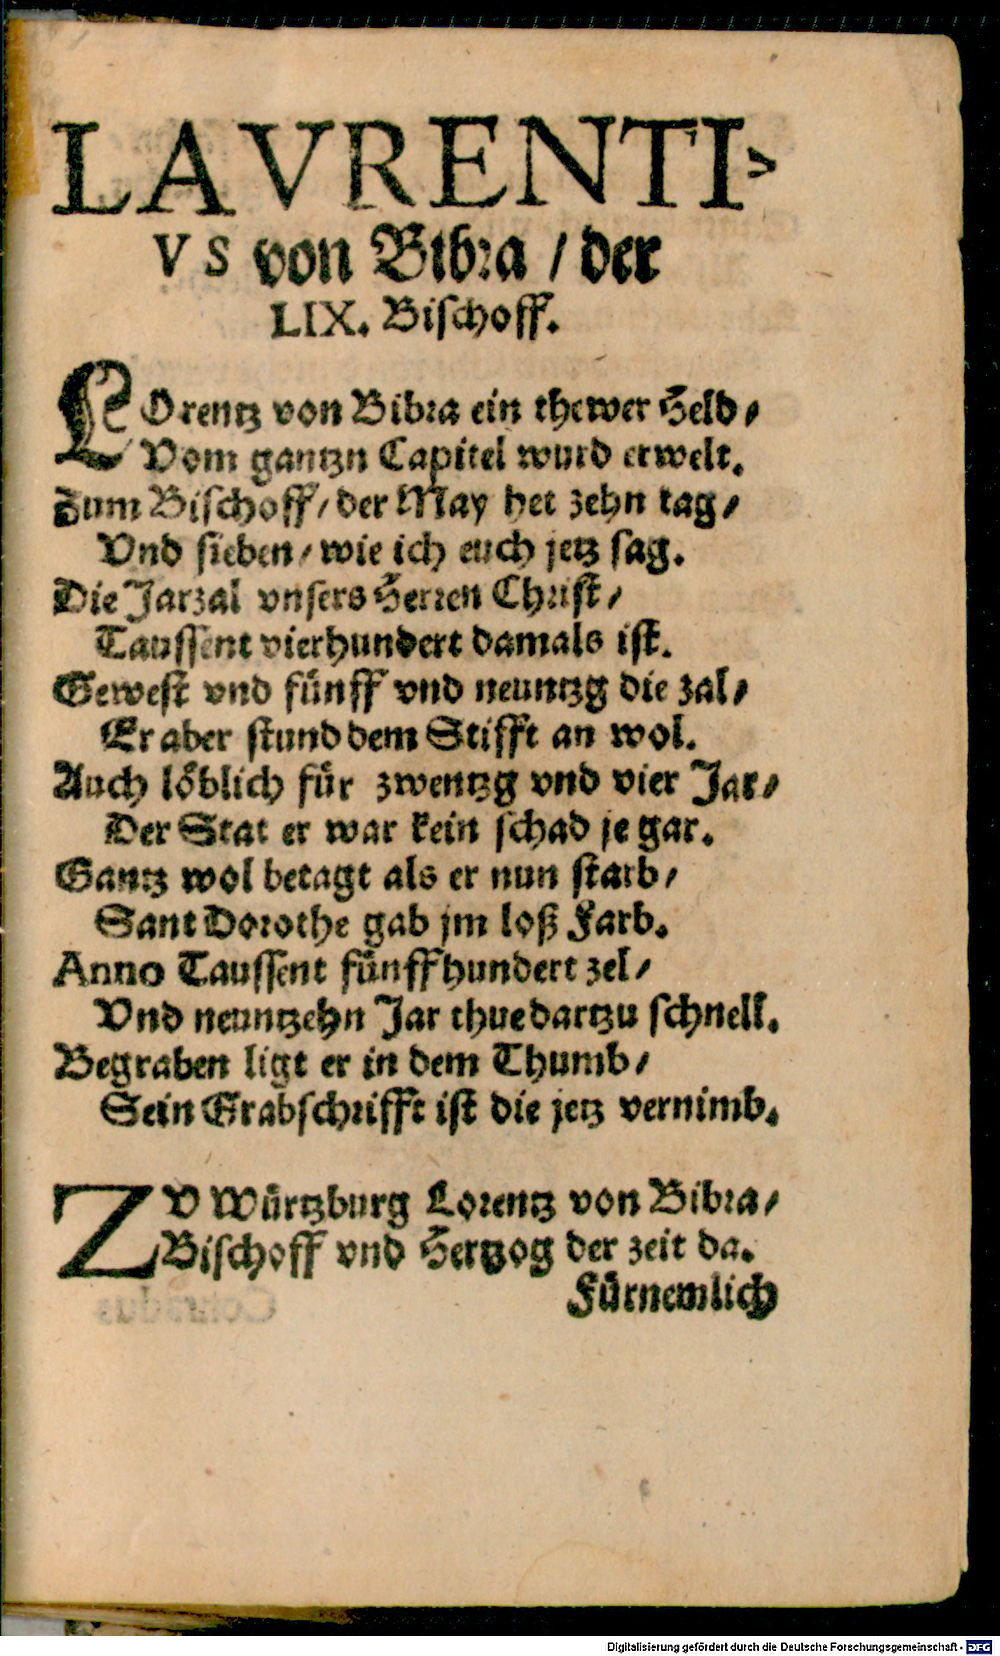 LAVRENTI⸗
VS von Bibra / der
LIX. Bischoff.
LOrentz von Bibra ein thewer Held /
Vom gantzn Capitel wurd erwelt.
Zum Bischoff / der May het zehn tag /
Vnd sieben / wie ich euch jetz sag.
Die Jarzal vnsers Herren Christ /
Taussent vierhundert damals ist.
Gewest vnd fünff vnd neuntzg die zal /
Er aber stund dem Stifft an wol.
Auch löblich für zwentzg vnd vier Jar /
Der Stat er war kein schad je gar.
Gantz wol betagt als er nun starb /
Sant Dorothe gab jm loß Farb.
Anno Taussent fünffhundert zel /
Vnd neuntzehn Jar thue dartzu schnell.
Begraben ligt er in dem Thumb /
Sein Grabschrifft ist die jetz vernimb.
ZV Würtzburg Lorentz von Bibra /
Bischoff vnd Hertzog der zeit da.
Fürnemlich
Digitalisierung gefördert durch die Deutsche Forschungsgemeinschaft - DFG